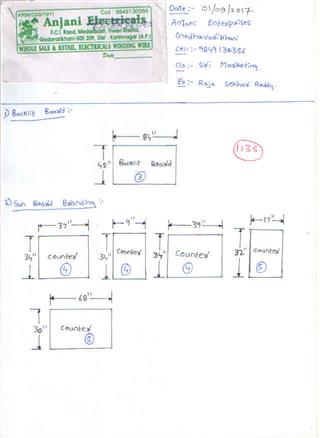 KRM/03/0/1911
Cell : 9849130356
Anjani Electricals
ENTERPRISES
F.C.I. Road, Medaribasti, Theen Rasta,
Godavarikhani-505 209, Dist : Karimnagar (A.P.)
WHOLE SALE & RETAIL, ELECTRICALS WINDING WIRE
Date
Date:- 01/09/2017
Anjani Enterprises
Godhavarikhani
Cell :- 9849130356
C/o:- Sri Marketing
Ex:- Raja Sekhar Reddy.
1) Backlit Board:-
84"
48"
Backlit Board
3
1135
2) Sun Board Branding:-
37"
9"
39"
17"
34"
Counter
4
34"
Counter
4
34"
Counter
4
32"
Counter
5
68"
30"
Counter
5